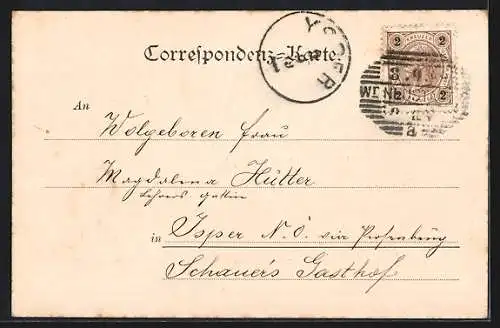 Correspondenz-Karte.
2 2
YSPER
WR. NEUST
An
Wolgeboren Frau
Magdalena Hütter
Lehrers gattin
in Isper N. Ö. via Persenbeug
Schauer's Gasthof